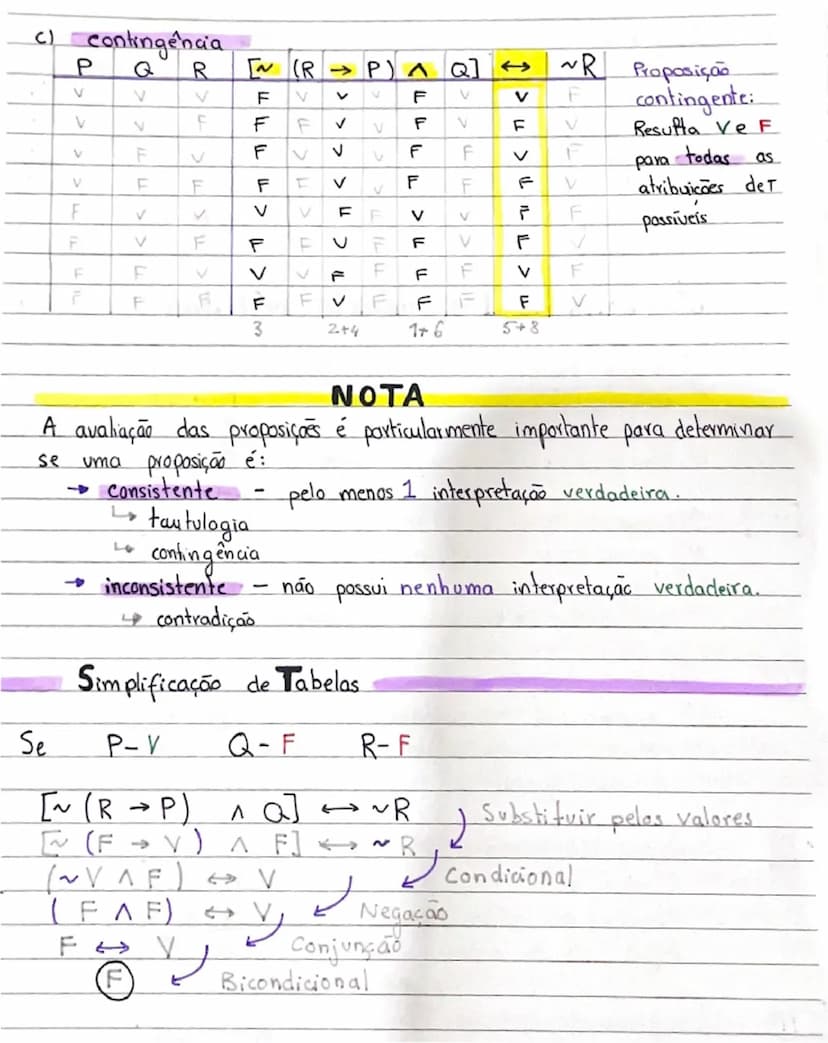 c) contingência
P Q R [~ (R → P) ∧ Q] ↔ ~R
V V V F V V V F V V F
V V F F F V V F V F V
V F V F V V V F F V F
V F F F F V V F F F V
F V V V V F F V V F F
F V F F F V F F V F V
F F V V V F F F F V F
F F F F F V F F F F V
3 2+4 1+6 5+8
Proposição
contingente:
Resulta V e F
para todas as
atribuições de T
possíveis
NOTA
A avaliação das proposições é particularmente importante para determinar
se uma proposição é:
→ consistente - pelo menos 1 interpretação verdadeira.
↳ tautulogia
↳ contingência
→ inconsistente – não possui nenhuma interpretação verdadeira.
↳ contradição
Simplificação de Tabelas
Se P-V Q-F R-F
[~ (R → P) ∧ Q] ↔ ~R
Substituir pelos valores
[~ (F → V) ∧ F] ↔ ~R
Condicional
(~V ∧ F) ↔ V
Negação
(F ∧ F) ↔ V
Conjunção
F ↔ V
Bicondicional
F